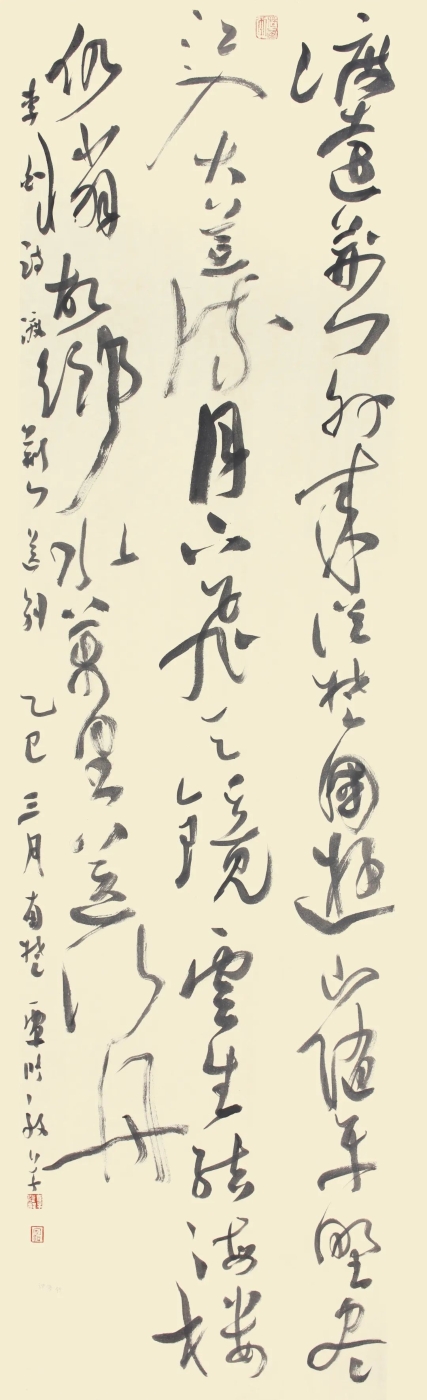 渡遠荊門外來從楚國遊山隨平野盡
江入大荒流月下飛天鏡雲生結海樓
仍憐故鄉水萬里送行舟
李白詩渡荊門送別 乙巳三月南楚覃